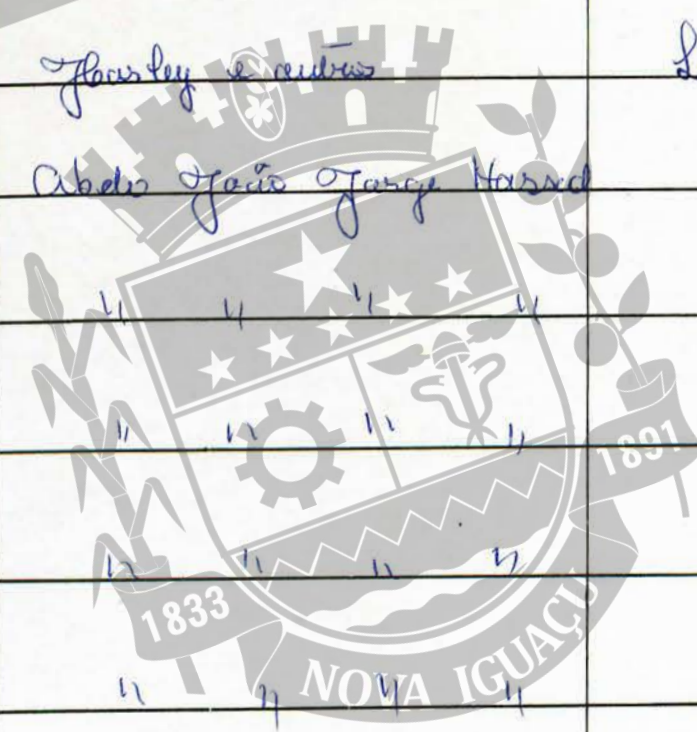 Harley e outros
Abdo João Jorge Hassed
" " " "
" " " "
1891
" " " "
1833
NOVA IGUAÇU
" " " "